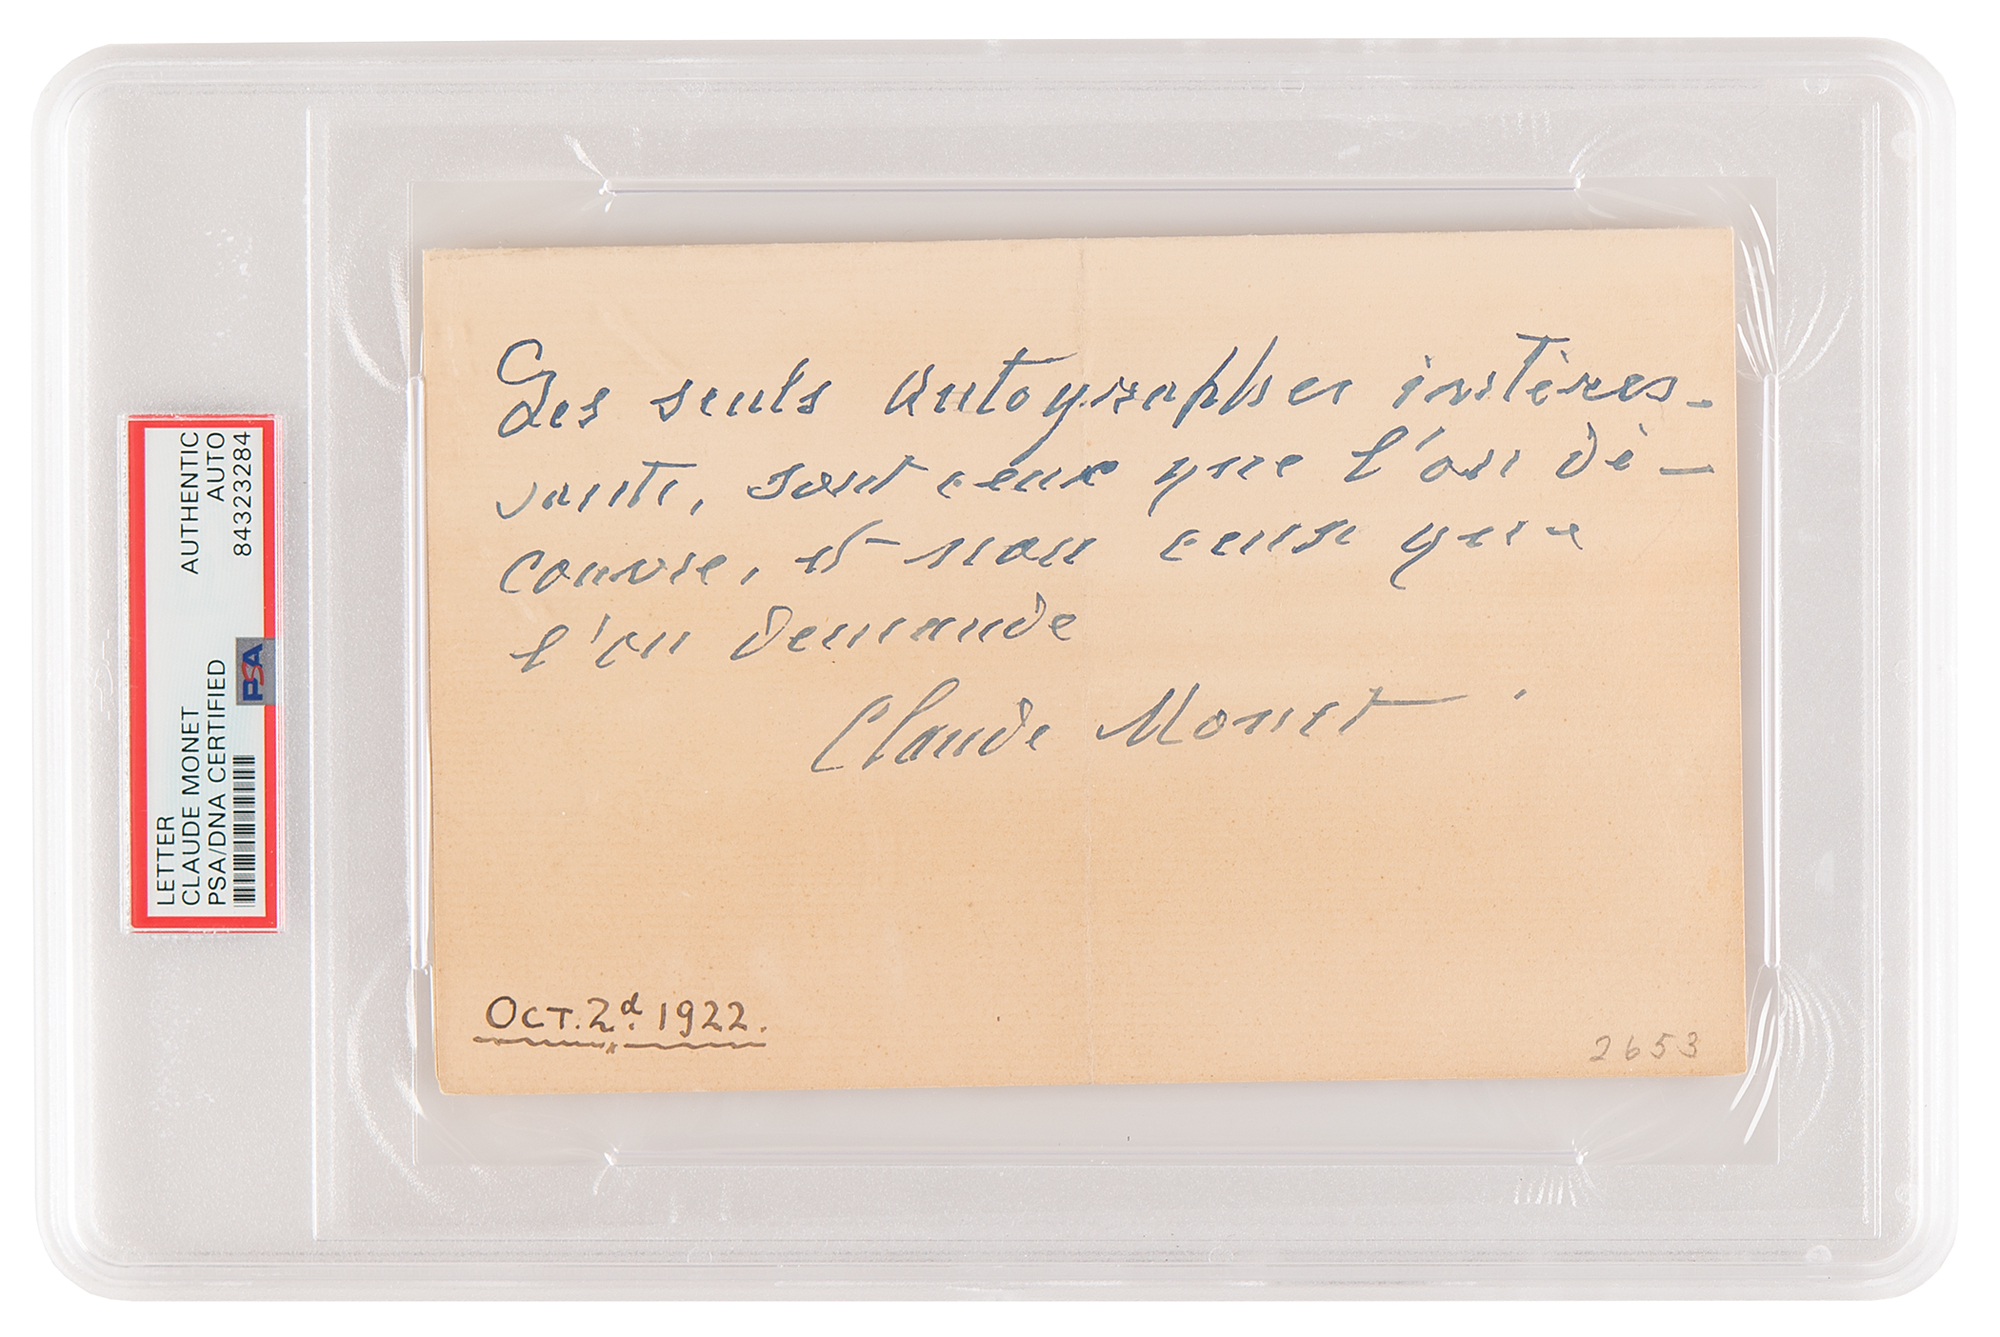 LETTER
CLAUDE MONET
PSA/DNA CERTIFIED
AUTHENTIC
AUTO
84323284
PSA
Les seuls autographes intéres-
sants, sont ceux que l'on dé-
couvre, et non ceux que
l'on demande
Claude Monet
OCT. 2d. 1922.
2653